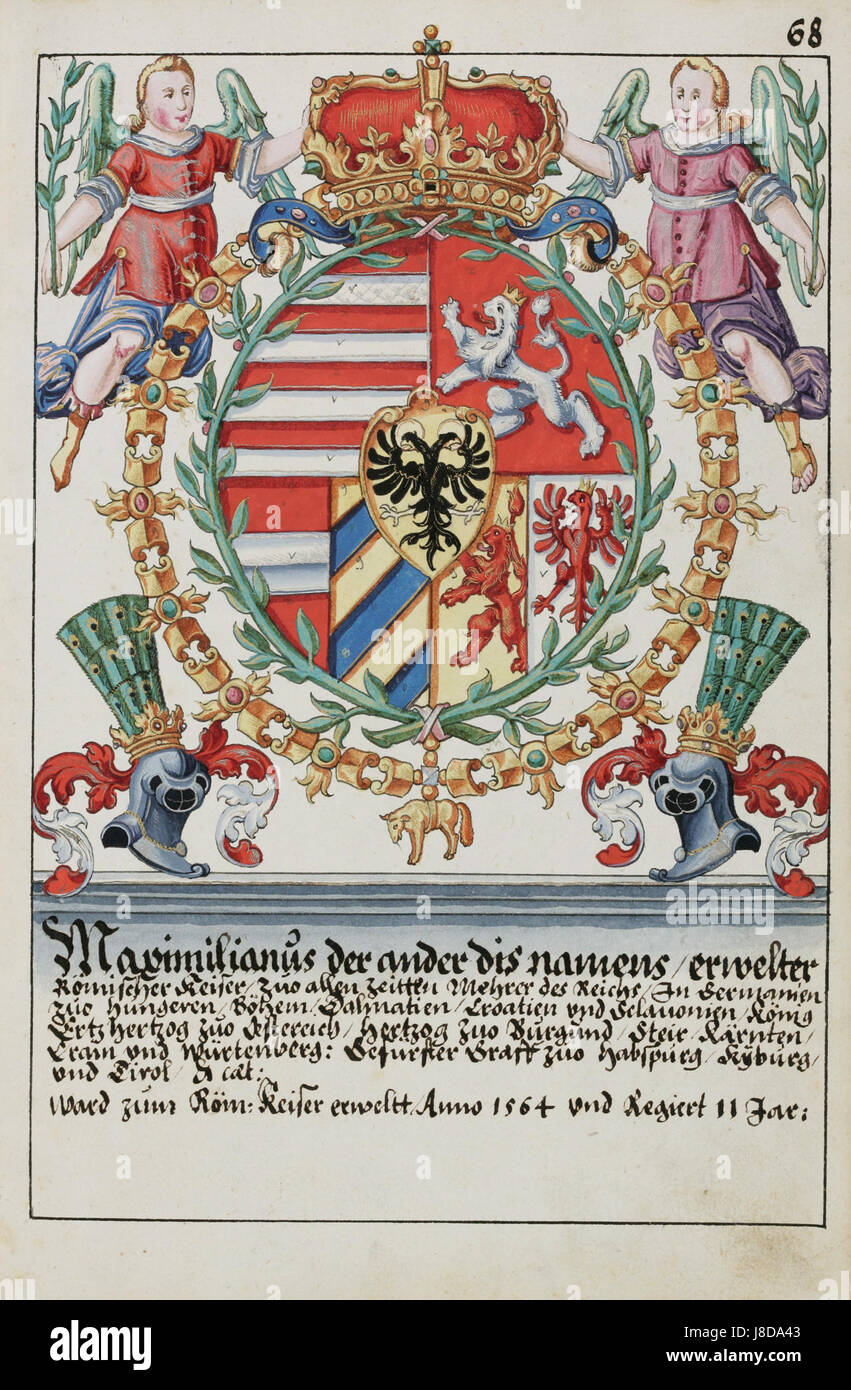 68
Maximilianus der ander dis namens / erwelter
Römischer Keiser / zuo allen zeitten Mehrer des Reichs / In Germanien
zuo Hungeren / Böhem / Dalmatien / Croatien und Sclauonien / König
Ertzhertzog zuo Oestereich / Hertzog zuo Burgund / Steir / Kärnten /
Crain und Würtenberg: Gefürster Graff zuo Habspurg / Kyburg /
und Tirol /
Ward zum Röm: Keiser erweltt / Anno 1564 und Regiert 11 Jar:
alamy
Image ID: J8DA43
www.alamy.com